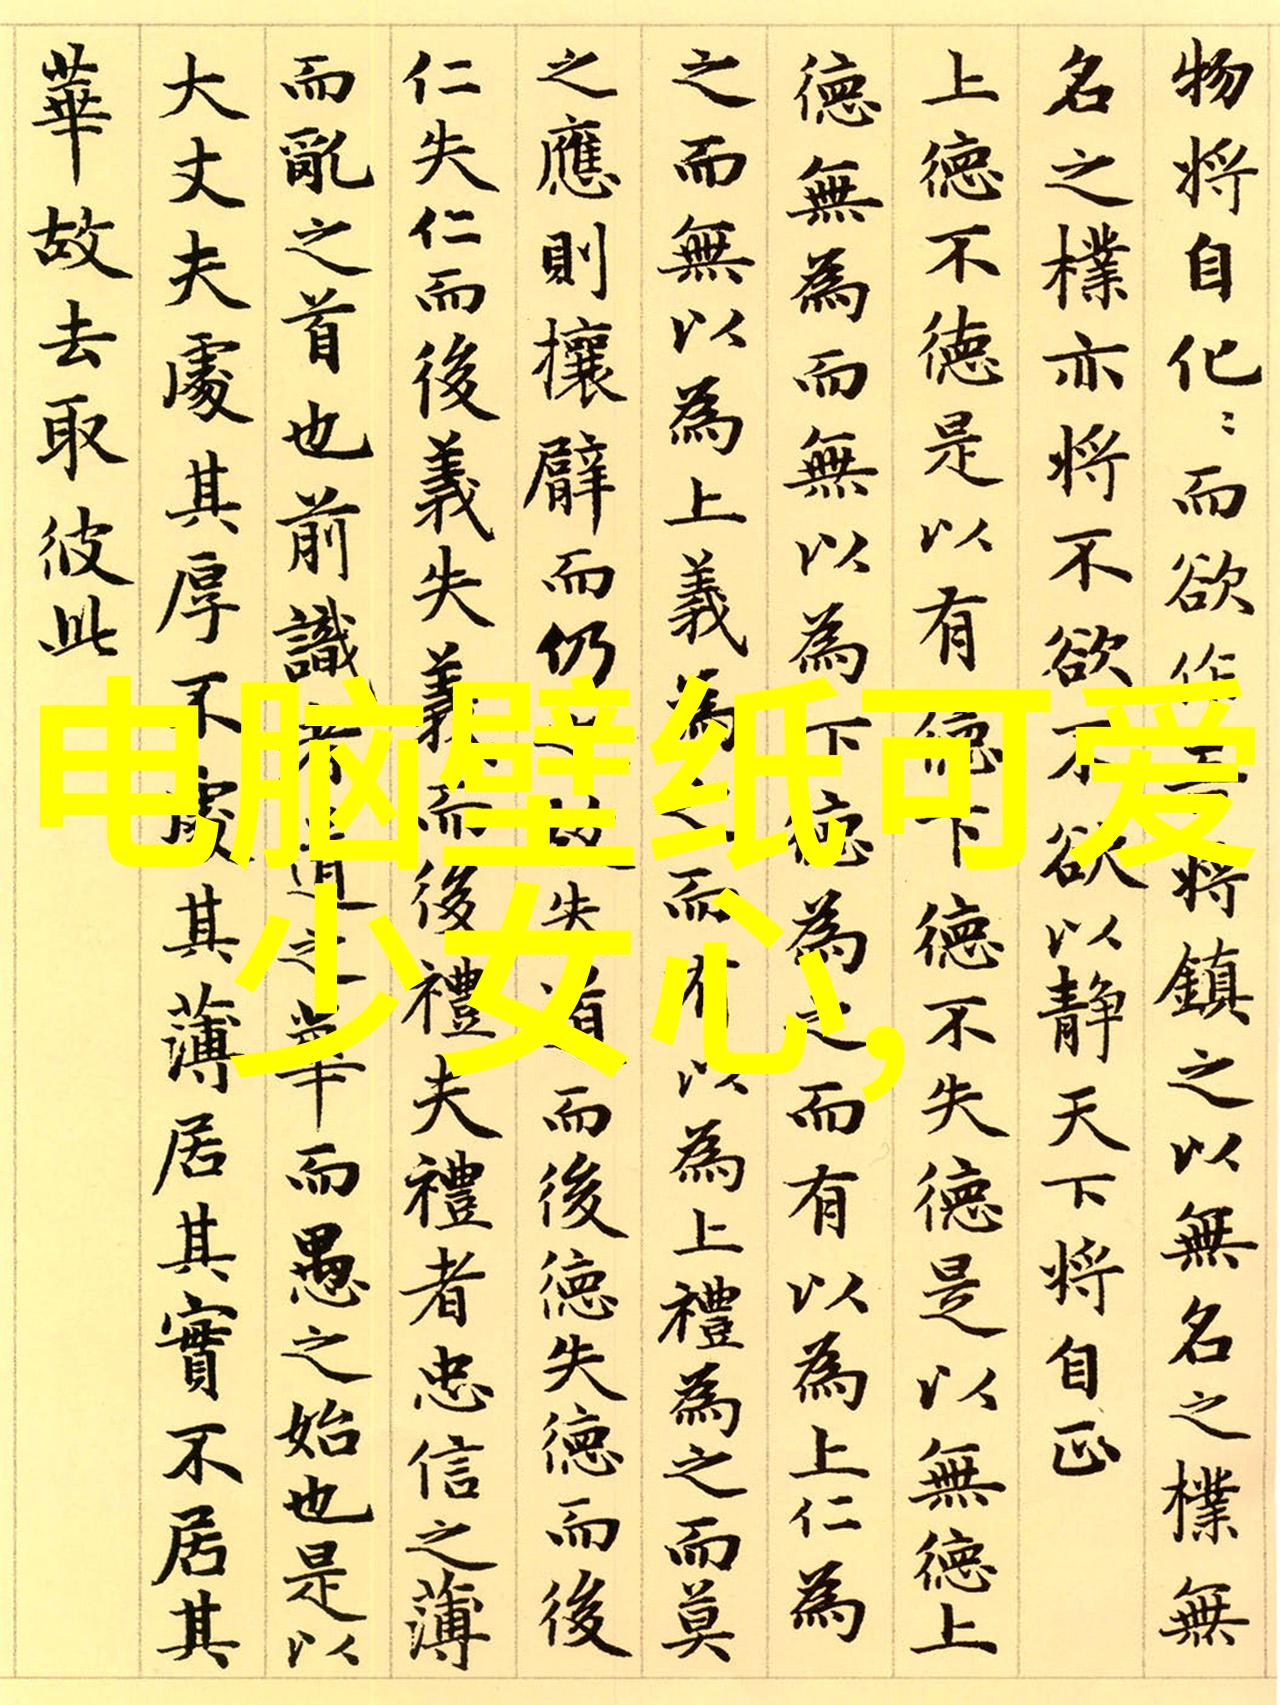 物将自化〻而欲作吾将鎮之以無名之樸無
名之樸亦将不欲不欲以静天下将自正
上德不德是以有德下德不失德是以無德上
德無為而無以為下德為之而有以為上仁為
之而無以為上義為之而有以為上禮為之而莫
之應則攘臂而仍之故失道而後德失德而後
仁失仁而後義失義而後禮夫禮者忠信之薄
而亂之首也前識者道之華而愚之始也是以
大丈夫處其厚不處其薄居其實不居其
華故去取彼此
电脑壁纸可爱
少女心,